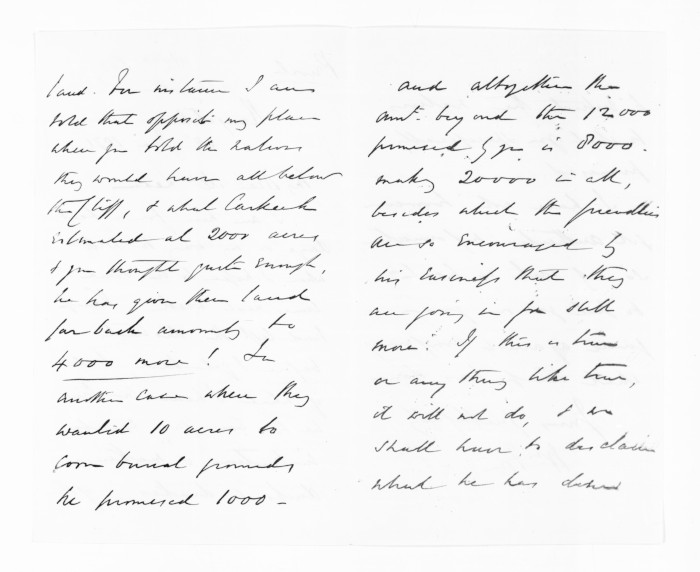 land. For instance I am
told that opposite my place
where you told the natives
they would have all below
the Cliff, & what Carkeek
estimated at 2000 acres
& you thought quite enough,
he has given them land
far back amounting to
4000 more! In
another case where they
wanted 10 acres to
cover burial grounds
he promised 1000 -
and altogether the
amt. beyond the 12000
promised by you is 8000.
making 20000 in all,
besides which the friendlies
are so encouraged by
his easiness that they
are going in for still
more! If this is true
or any thing like true,
it will not do, & we
shall have to disclaim
what he has done